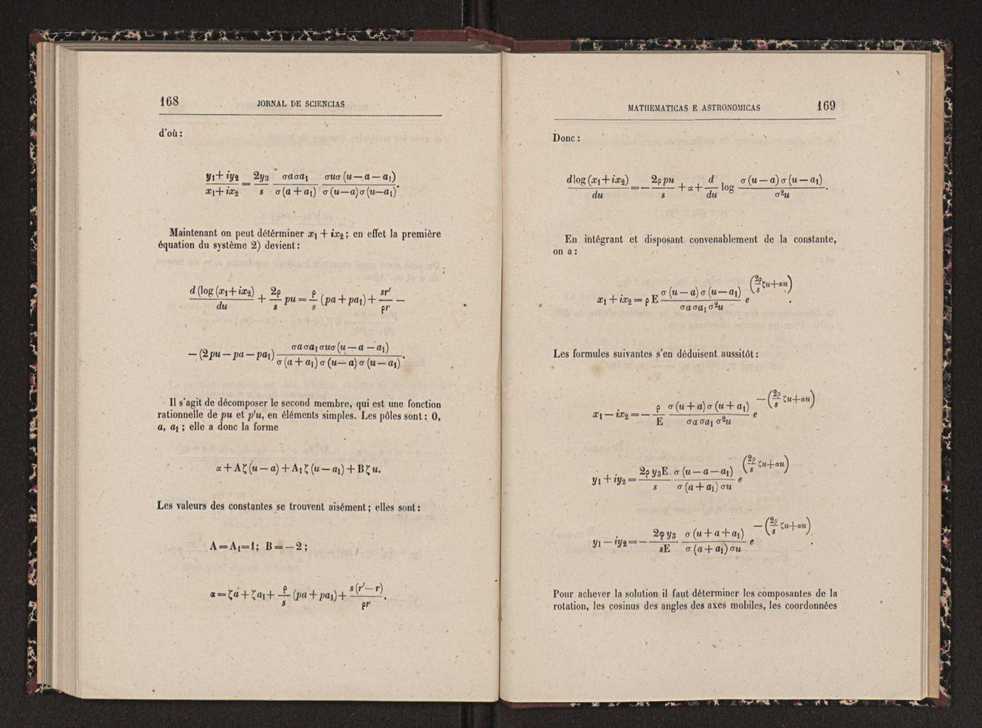 168 JORNAL DE SCIENCIAS
d'où :
(y₁ + iy₂)/(x₁ + ix₂) = (2y₃/s) (σaσa₁/σ(a + a₁)) (σuσ(u — a — a₁)/σ(u—a)σ(u—a₁)).
Maintenant on peut détérminer x₁ + ix₂; en effet la première
équation du système 2) devient :
d(log(x₁+ix₂)/du + (2ρ/s) pu = (ρ/s) (pa + pa₁) + sr'/ρr —
— (2pu — pa — pa₁) σaσa₁σuσ(u — a — a₁)/σ(a + a₁)σ(u—a)σ(u — a₁).
Il s'agit de décomposer le second membre, qui est une fonction
rationnelle de pu et p'u, en éléments simples. Les pôles sont : 0,
a, a₁ ; elle a donc la forme
α + Aζ(u — a) + A₁ζ(u — a₁) + Bζu.
Les valeurs des constantes se trouvent aisément; elles sont :
A = A₁ = 1; B = — 2;
α = ζa + ζa₁ + (ρ/s) (pa + pa₁) + s(r' — r)/ρr.
MATHEMATICAS E ASTRONOMICAS 169
Donc :
dlog(x₁+ix₂)/du = — 2ρpu/s + α + (d/du) log σ(u — a)σ(u — a₁)/σ²u.
En intégrant et disposant convenablement de la constante,
on a :
x₁ + ix₂ = ρE (σ(u — a)σ(u—a₁)/σaσa₁σ²u) e^((2ρ/s)ζu+αu).
Les formules suivantes s'en déduisent aussitôt :
x₁ — ix₂ = — (ρ/E) (σ(u + a)σ(u + a₁)/σaσa₁σ²u) e^—((2ρ/s)ζu+αu)
y₁ + iy₂ = (2ρy₃E/s) (σ(u — a — a₁)/σ(a + a₁)σu) e^((2ρ/s)ζu+αu)
y₁ — iy₂ = — (2ρy₃/sE) (σ(u + a + a₁)/σ(a + a₁)σu) e^—((2ρ/s)ζu+αu).
Pour achever la solution il faut déterminer les composantes de la
rotation, les cosinus des angles des axes mobiles, les coordonnées